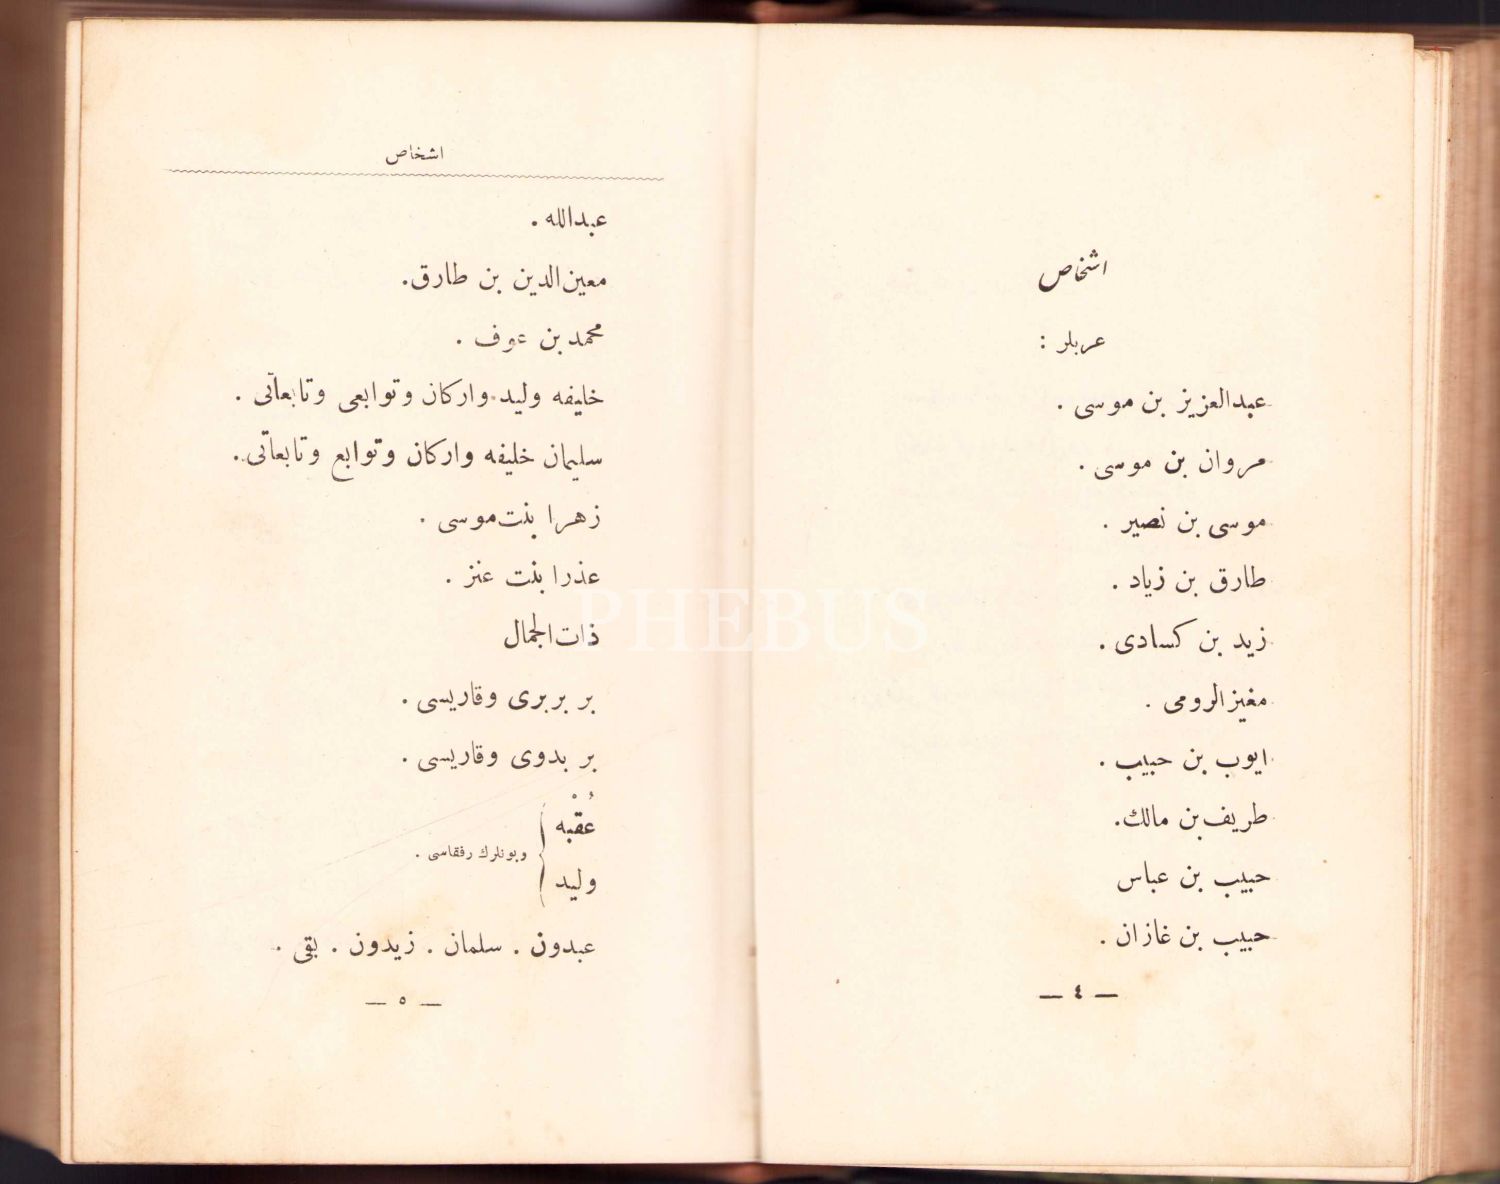 اشخاص
عربلر :
عبدالعزيز بن موسى .
مروان بن موسى .
موسى بن نصير .
طارق بن زياد .
زيد بن كسادى .
مغيزالرومى .
ايوب بن حبيب .
طريف بن مالك.
حبيب بن عباس
حبيب بن غازان .
— ٤ —
اشخاص
عبدالله .
معين‌الدين بن طارق.
محمد بن عوف .
خليفه وليد واركان وتوابعى وتابعاتى .
سليمان خليفه واركان وتوابع وتابعاتى .
زهرا بنت موسى .
عذرا بنت عنز .
ذات‌الجمال
بر بربرى وقاريسى .
بر بدوى وقاريسى .
عُقْبه
وليد
وبونلرك رفقاسى .
عبدون . سلمان . زيدون . بقى .
— ٥ —
PHEBUS